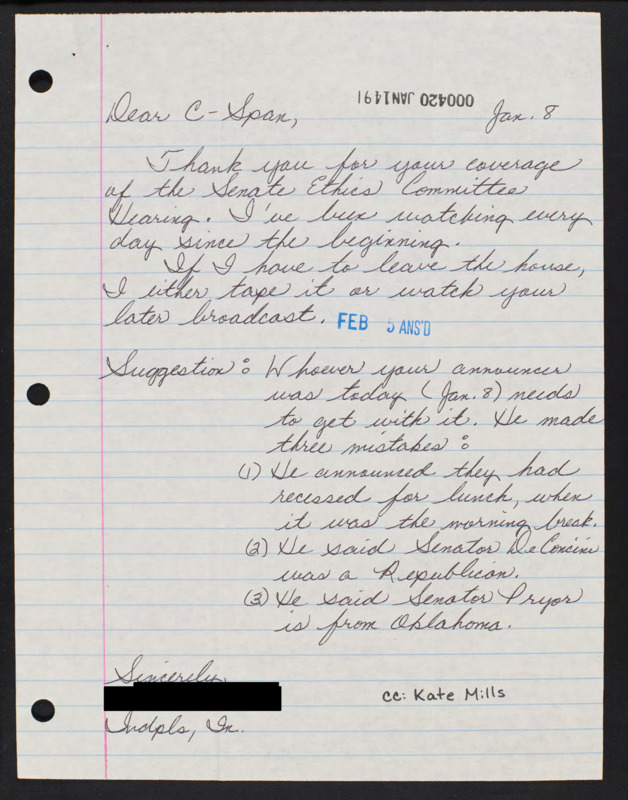 000420 JAN1491
Dear C-Span,
Jan. 8
Thank you for your coverage
of the Senate Ethics Committee
Hearing. I've been watching every
day since the beginning.
If I have to leave the house,
I either tape it or watch your
later broadcast.
FEB 5 ANS'D
Suggestion: Whoever your announcer
was today (Jan. 8) needs
to get with it. He made
three mistakes:
(1) He announced they had
recessed for lunch, when
it was the morning break.
(2) He said Senator DeConcini
was a Republican.
(3) He said Senator Pryor
is from Oklahoma.
Sincerely,
cc: Kate Mills
Indpls, In.